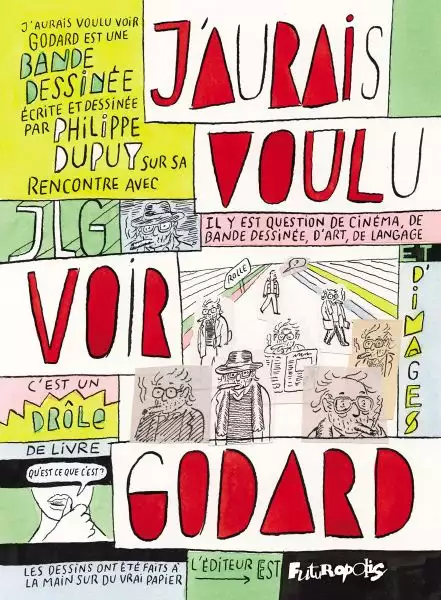 J'AURAIS VOULU VOIR
GODARD EST UNE
BANDE
DESSINÉE
ÉCRITE ET DESSINÉE
PAR PHILIPPE
DUPUY SUR SA
RENCONTRE AVEC
JLG
J'AURAIS
VOULU
IL Y EST QUESTION DE CINÉMA, DE
BANDE DESSINÉE, D'ART, DE LANGAGE
ET
D'IMAGES
VOIR
ROLLE
?
C'EST UN
DRÔLE
DE LIVRE
QU'EST CE QUE C'EST?
GODARD
LES DESSINS ONT ÉTÉ FAITS À
LA MAIN SUR DU VRAI PAPIER
L'ÉDITEUR EST
FUTUROPOLIS